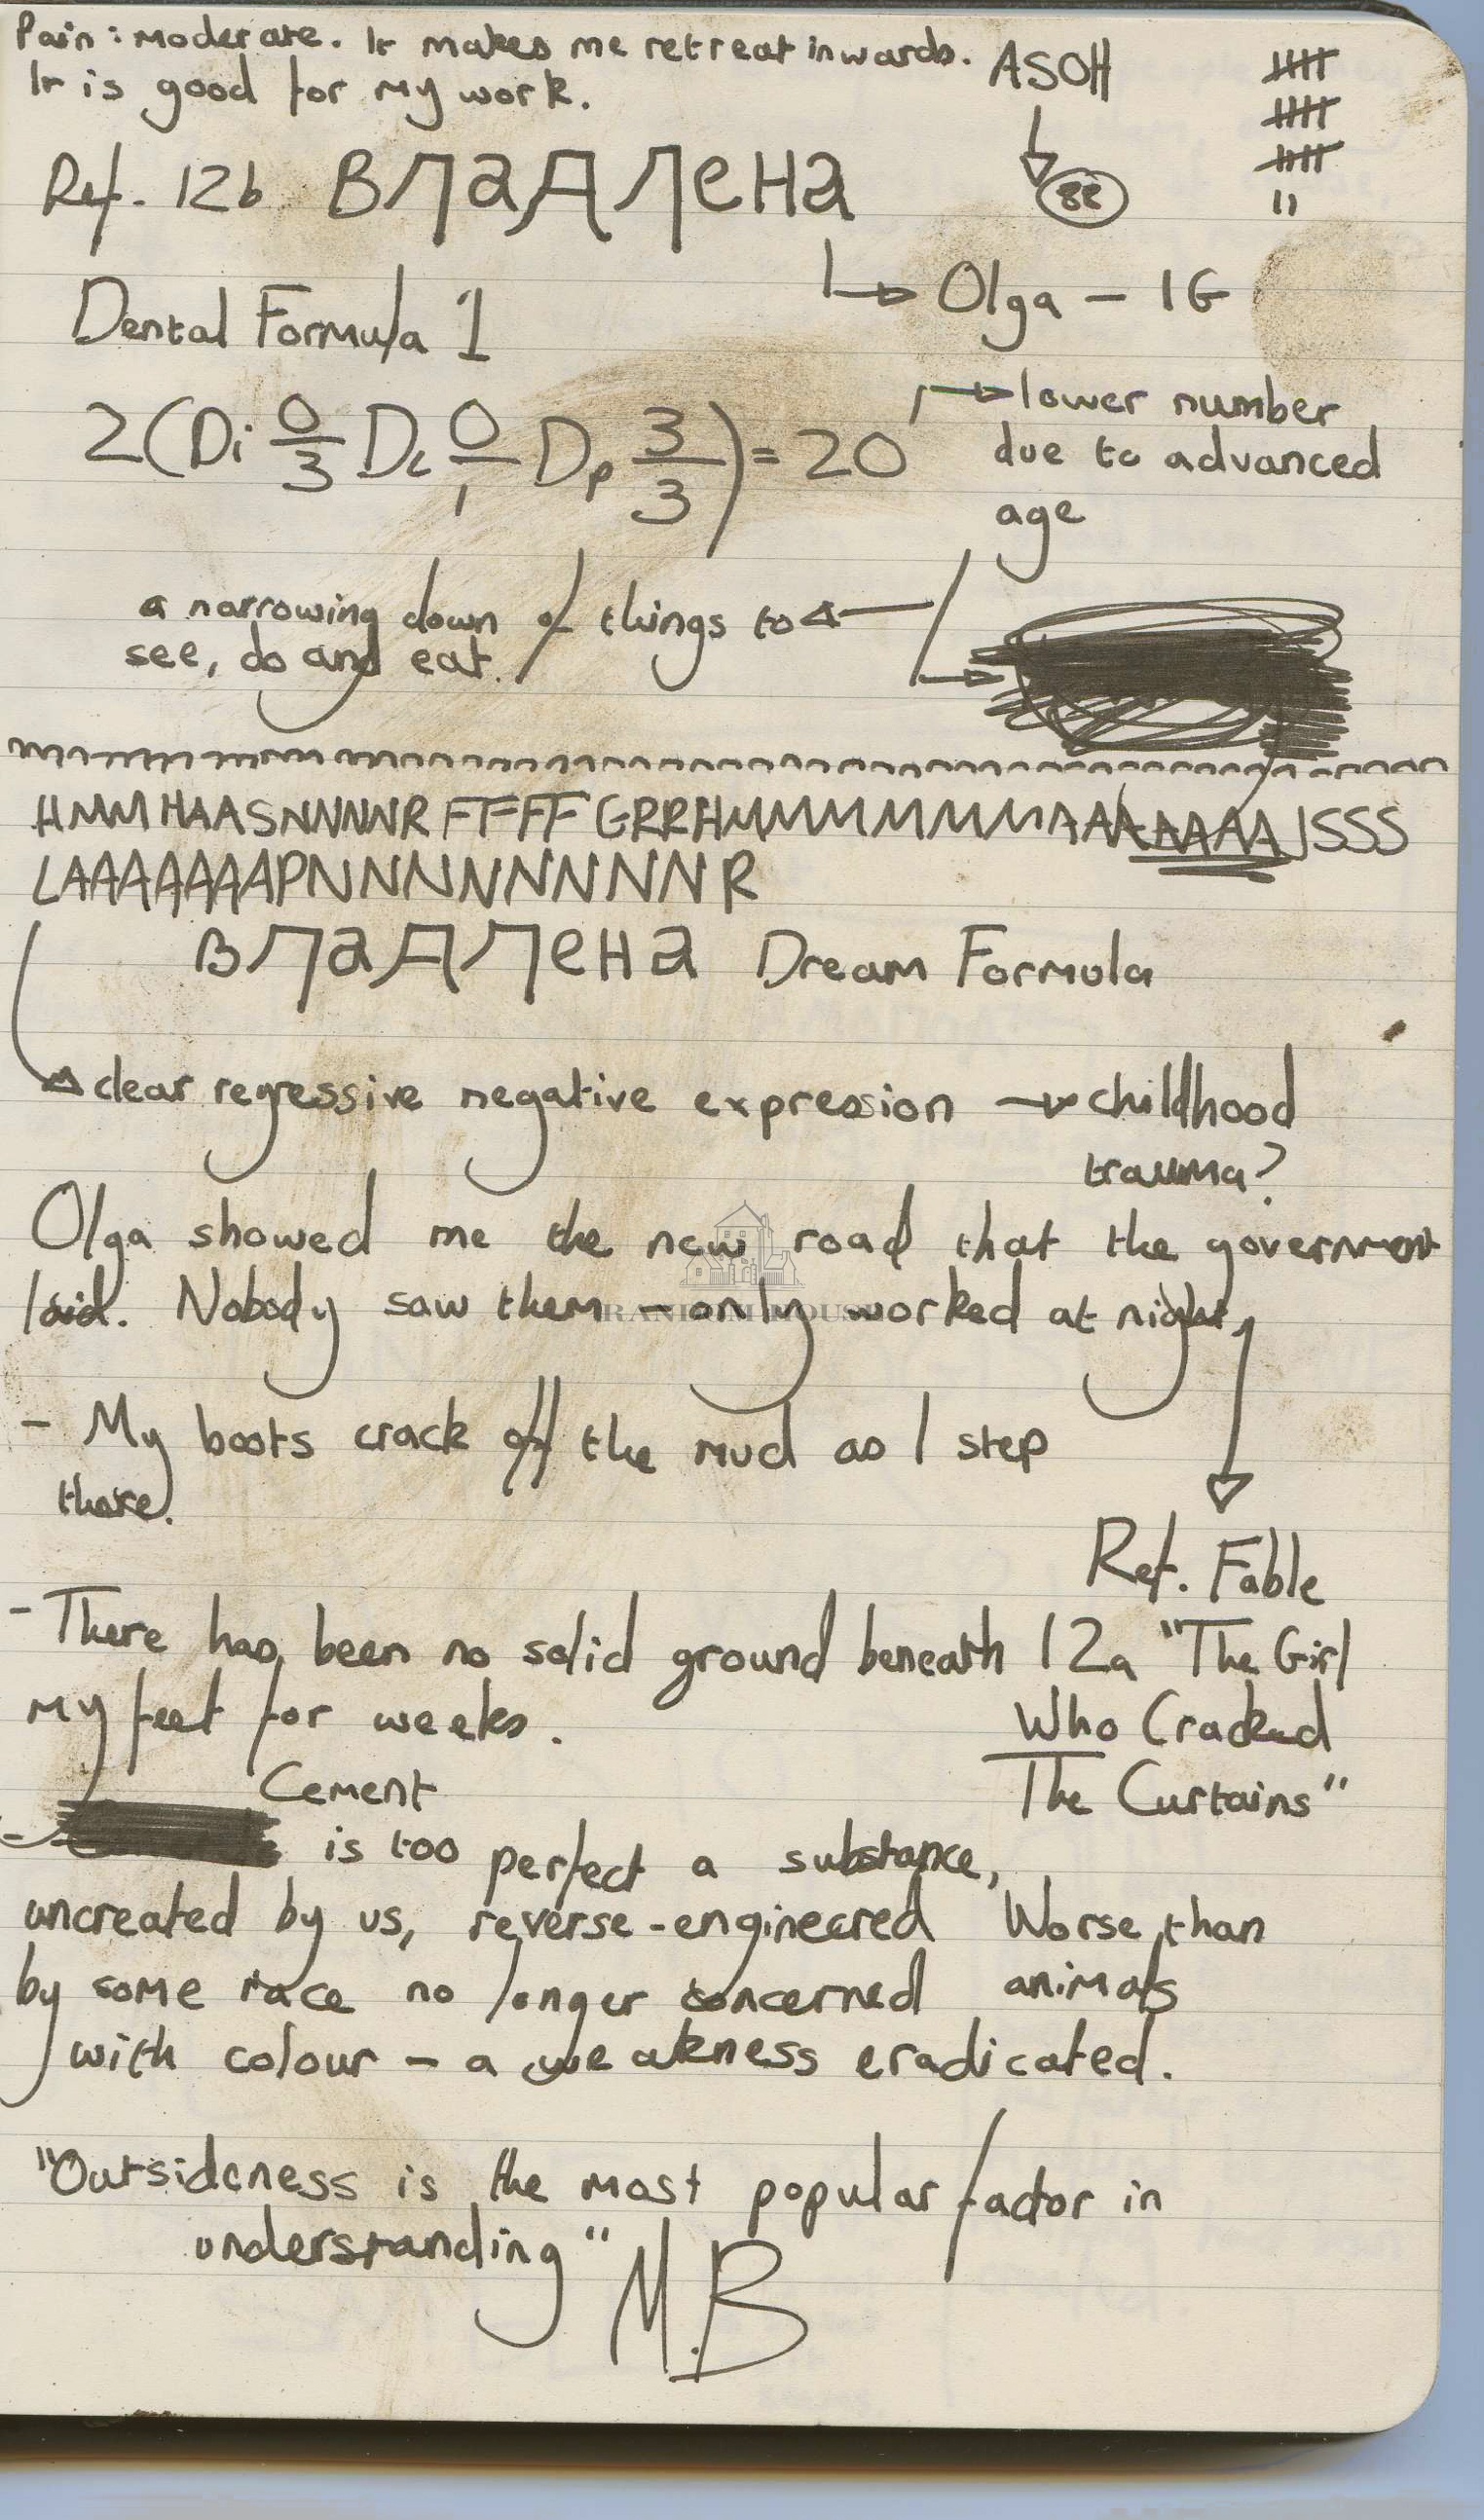 Pain: moderate. It makes me retreat inwards.
It is good for my work.
ASOH
Ref. 12b Владлена
Olga - 1G
Dental Formula 1
2(Di 0/3 Dc 0/1 Dp 3/3) = 20
lower number
due to advanced
age
a narrowing down of things to
see, do and eat.
HMMHAASNNNNRFFFFFGRRHMMMMMMMMAAAAAAAJSSS
LAAAAAAAPNNNNNNNNNNR
Владлена Dream Formula
clear regressive negative expression → childhood
trauma?
Olga showed me the new road that the government
laid. Nobody saw them - only worked at night,
RANDOM HOUSE
- My boots crack off the mud as I step
there.
Ref. Fable
12a "The Girl
Who Cracked
The Curtains"
- There has been no solid ground beneath
my feet for weeks.
Cement
- is too perfect a substance,
uncreated by us, reverse-engineered
by some race no longer concerned
with colour - a weakness eradicated.
Worse than
animals
"Outsideness is the most popular factor in
understanding"
M.B